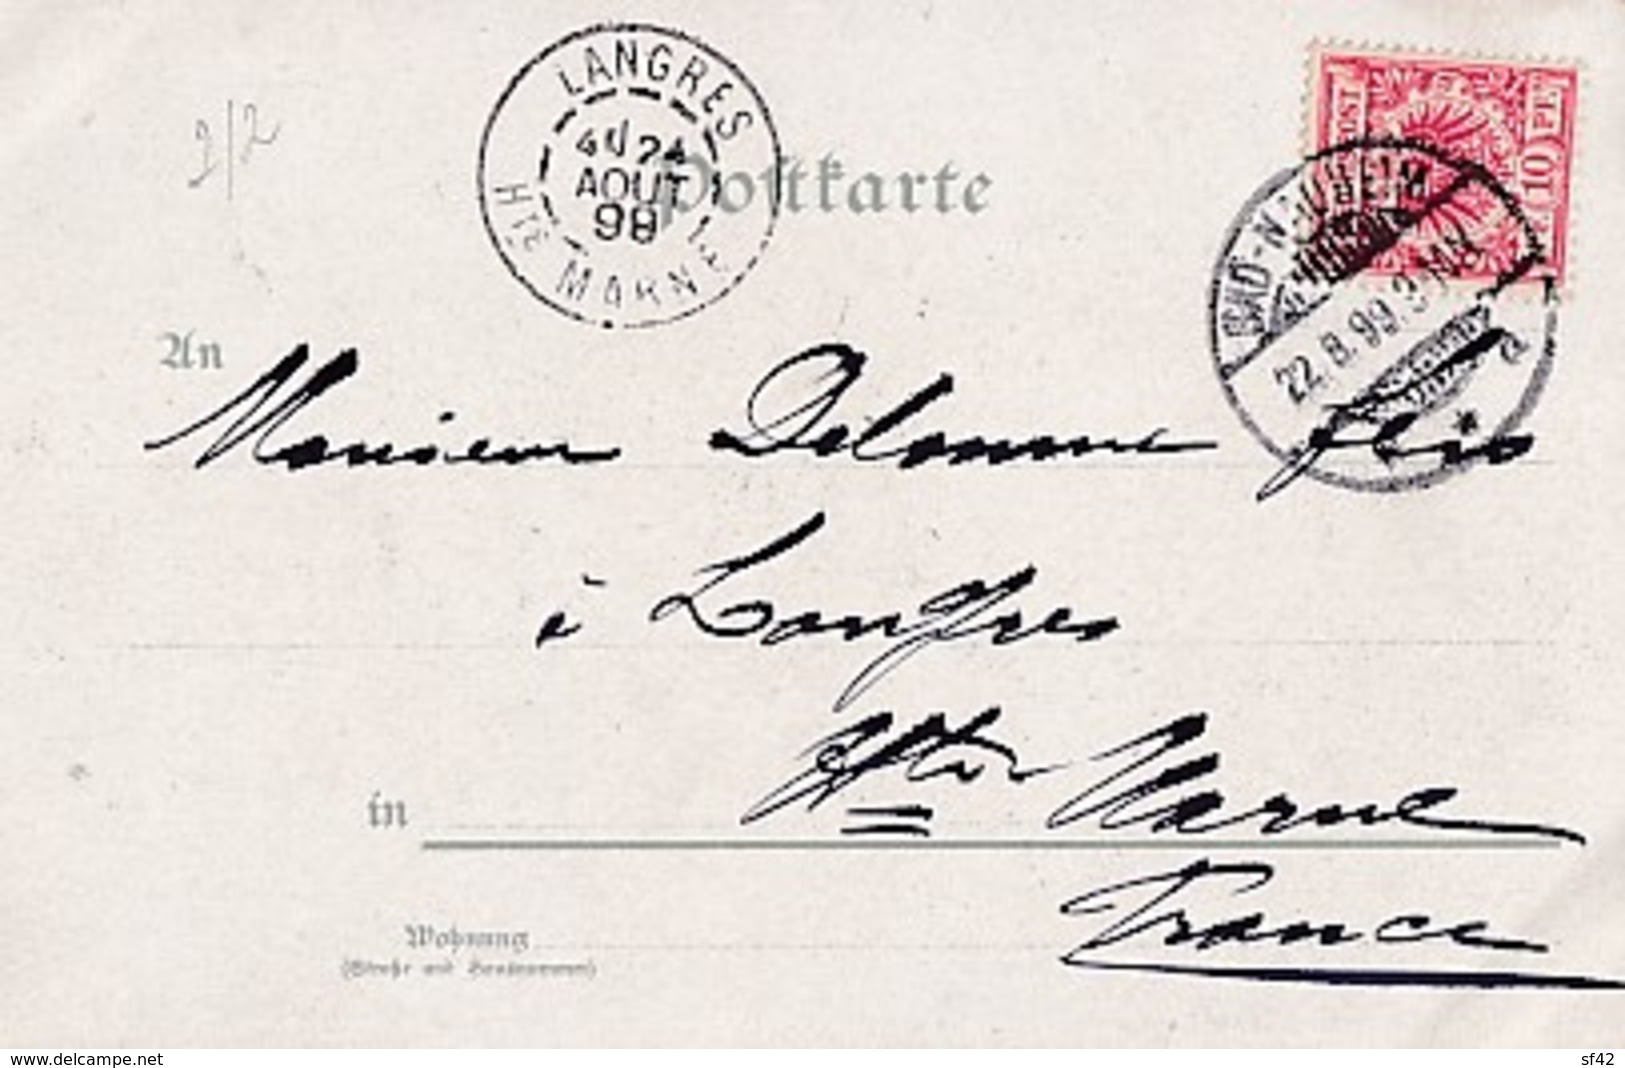 LANGRES
24
AOUT
99
HTE MARNE
1/2
Postkarte
POST 10 PF.
BAD-NAUHEIM
22.8.99.
a
An
Monsieur Delomme fils
à Langres
Hte Marne
in
France
Wohnung
(Straße und Hausnummer)
www.delcampe.net
sf42